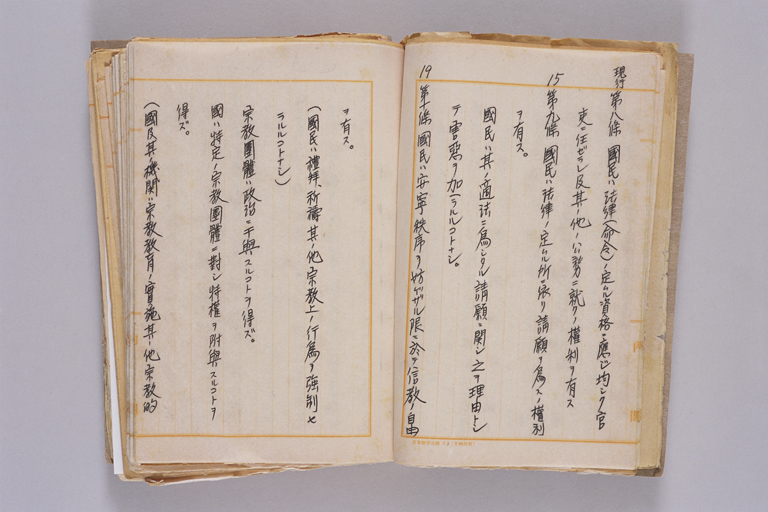 現行 第八條 國民ハ法律(命令)ノ定ムル資格ニ應ジ均シク官
吏ニ任ゼラレ及其ノ他ノ公務ニ就クノ權利ヲ有ス
15 第九條 國民ハ法律ノ定ムル所ニ依リ請願ヲ為スノ權利
ヲ有ス。
國民ハ其ノ適法ニ為シタル請願ニ関シ之ヲ理由トシ
テ害惡ヲ加ヘラルルコトナシ。
19 第十條 國民ハ安寧秩序ヲ妨ゲザル限ニ於テ信教ノ自由
ヲ有ス。
(國民ハ禮拜、祈禱其ノ他宗教上ノ行為ヲ強制セ
ラルルコトナシ)
宗教團體ハ政治ニ干與スルコトヲ得ズ。
國ハ特定ノ宗教團體ニ對シ特權ヲ附與スルコトヲ
得ズ。
(國及其ノ機関ハ宗教教育ノ實施其ノ他宗教的